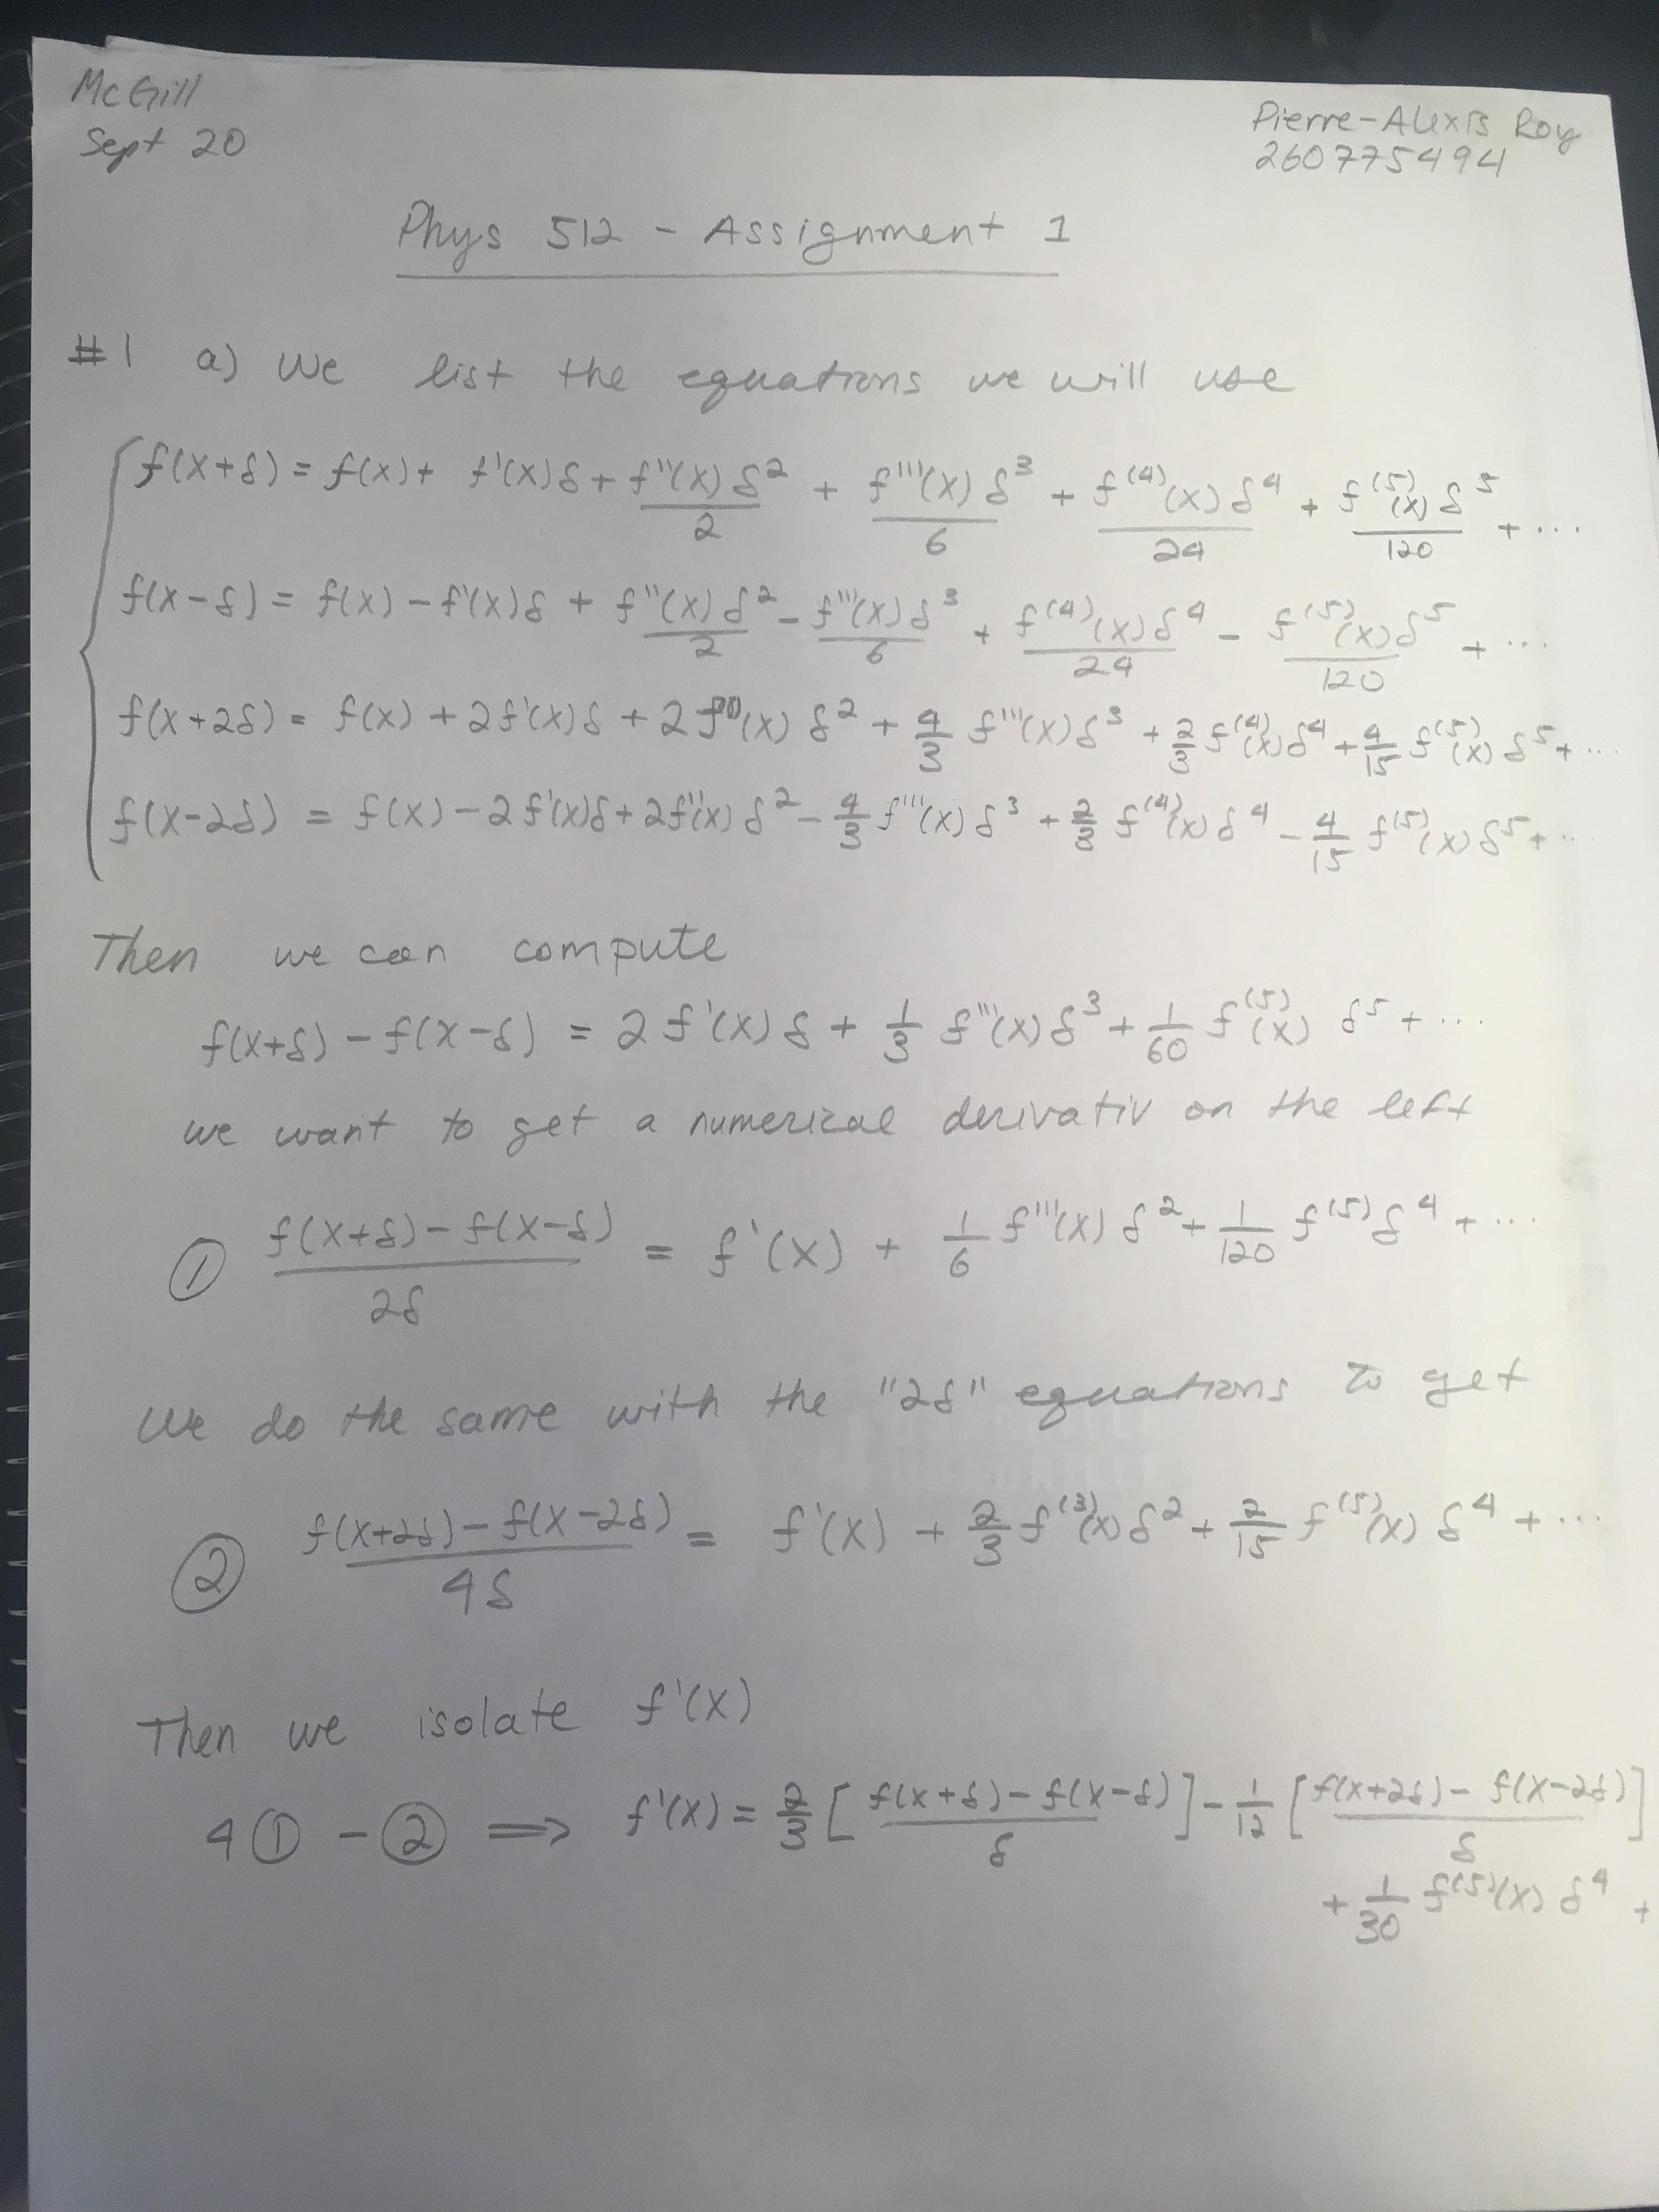 McGill
Sept 20
Pierre-Alexis Roy
260775494
Phys 512 - Assignment 1
#1 a) We list the equations we will use
f(x+δ) = f(x) + f'(x)δ + f''(x)δ²/2 + f'''(x)δ³/6 + f⁽⁴⁾(x)δ⁴/24 + f⁽⁵⁾(x)δ⁵/120 + ...
f(x-δ) = f(x) - f'(x)δ + f''(x)δ²/2 - f'''(x)δ³/6 + f⁽⁴⁾(x)δ⁴/24 - f⁽⁵⁾(x)δ⁵/120 + ...
f(x+2δ) = f(x) + 2f'(x)δ + 2f''(x)δ² + 4/3 f'''(x)δ³ + 2/3 f⁽⁴⁾(x)δ⁴ + 4/15 f⁽⁵⁾(x)δ⁵ + ...
f(x-2δ) = f(x) - 2f'(x)δ + 2f''(x)δ² - 4/3 f'''(x)δ³ + 2/3 f⁽⁴⁾(x)δ⁴ - 4/15 f⁽⁵⁾(x)δ⁵ + ...
Then we can compute
f(x+δ) - f(x-δ) = 2f'(x)δ + 1/3 f'''(x)δ³ + 1/60 f⁽⁵⁾(x)δ⁵ + ...
we want to get a numerical derivativ on the left
① (f(x+δ) - f(x-δ))/2δ = f'(x) + 1/6 f'''(x)δ² + 1/120 f⁽⁵⁾δ⁴ + ...
We do the same with the "2δ" equations to get
② (f(x+2δ) - f(x-2δ))/4δ = f'(x) + 2/3 f⁽³⁾(x)δ² + 2/15 f⁽⁵⁾(x)δ⁴ + ...
Then we isolate f'(x)
4① - ② ⟹ f'(x) = 2/3 [(f(x+δ) - f(x-δ))/δ] - 1/12 [(f(x+2δ) - f(x-2δ))/δ]
+ 1/30 f⁽⁵⁾(x)δ⁴ +